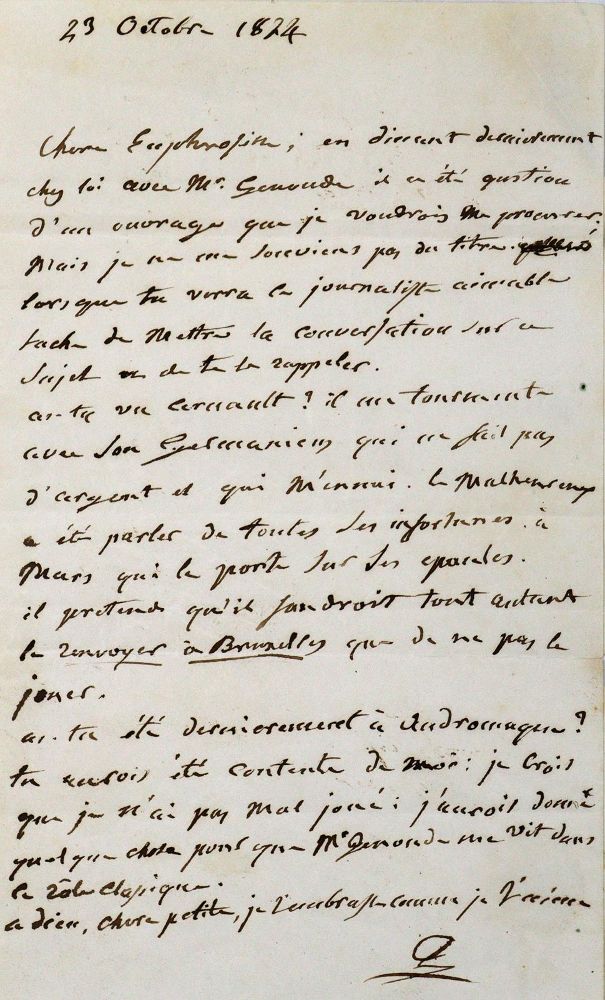 23 Octobre 1824
Chere Euphrosine; en dinant dernierement
chez toi avec Mr. Genoude il a été question
d'un ouvrage que je voudrois me procurer.
Mais je ne me souviens pas du titre.
lorsque tu verra le journaliste aimable
tache de mettre la conversation sur ce
sujet et de te le rappeler.
as-tu vu arnault? il me tourmente
avec son Germanicus qui ne fait pas
d'argent et qui m'ennui. le malheureux
a été parler de toutes ses infortunes. à
Mars qui le porte sur ses epaules.
il pretend qu'il faudroit tout autant
le renvoyer à Bruxelles que de ne pas le
jouer.
as-tu été dernierement à Andromaque?
tu aurois été contente de moi: je crois
que je n'ai pas mal joué: j'aurois donné
quelque chose pour que Mr Genoude me vit dans
ce rôle classique.
adieu, chere petite, je t'embrasse comme je t'aime